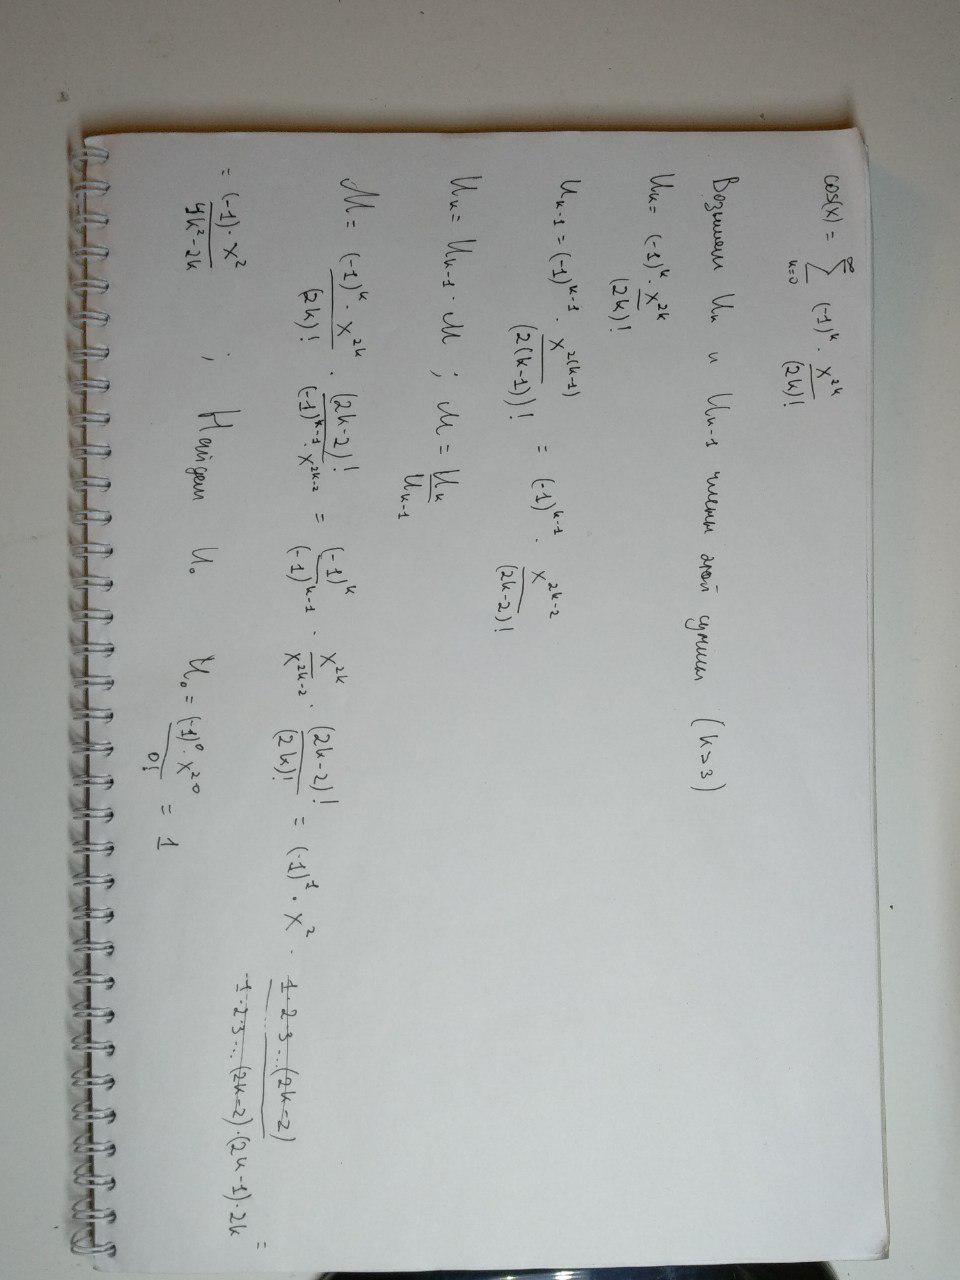 cos(x) = ∑_{k=0}^{∞} (-1)^k · x^{2k} / (2k)!
Возьмем U_k и U_{k-1} члены этой суммы (k>3)
U_k = (-1)^k · x^{2k} / (2k)!
U_{k-1} = (-1)^{k-1} · x^{2(k-1)} / (2(k-1))! = (-1)^{k-1} · x^{2k-2} / (2k-2)!
U_k = U_{k-1} · M ; M = U_k / U_{k-1}
M = (-1)^k · x^{2k} / (2k)! · (2k-2)! / ((-1)^{k-1} · x^{2k-2}) = (-1)^k / (-1)^{k-1} · x^{2k} / x^{2k-2} · (2k-2)! / (2k)! = (-1)^1 · x^2 · 1·2·3...(2k-2) / (1·2·3...(2k-2)·(2k-1)·2k) =
= (-1) · x^2 / (4k^2-2k) ; Найдем U_0 U_0 = (-1)^0 · x^{2·0} / 0! = 1